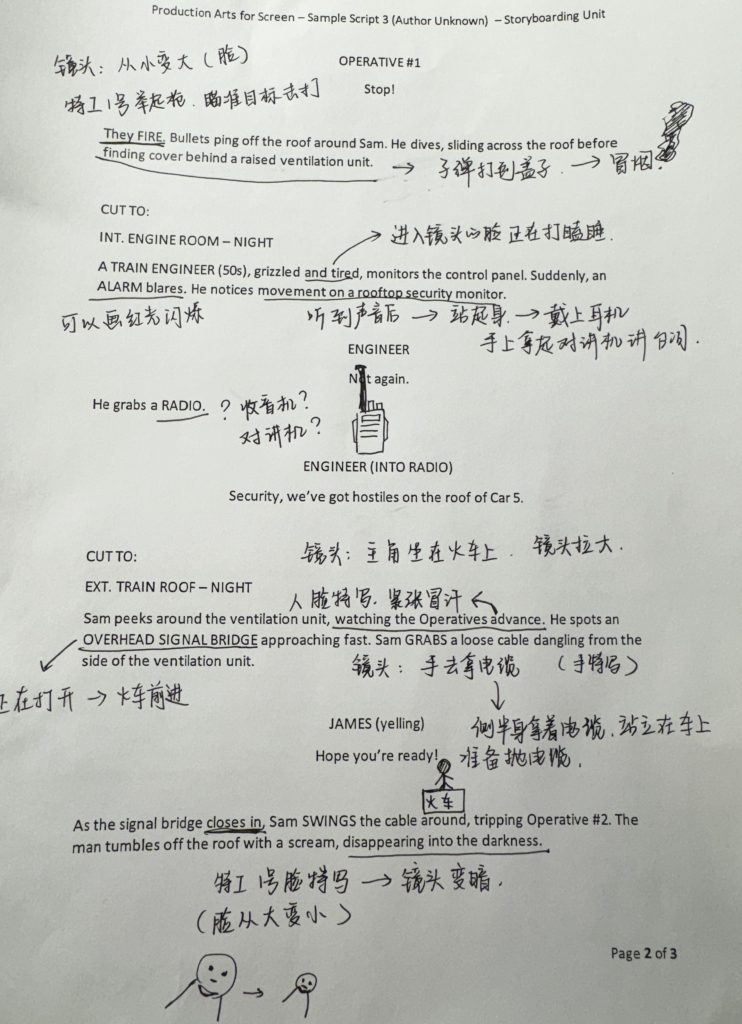 Production Arts for Screen – Sample Script 3 (Author Unknown) – Storyboarding Unit
镜头：从小变大（脸）
OPERATIVE #1
特工1号举起枪．瞄准目标击打
Stop!
They FIRE. Bullets ping off the roof around Sam. He dives, sliding across the roof before
finding cover behind a raised ventilation unit.
→ 子弹打到盖子．→ 冒烟．
CUT TO:
→ 进入镜头的脸 正在打瞌睡．
INT. ENGINE ROOM – NIGHT
A TRAIN ENGINEER (50s), grizzled and tired, monitors the control panel. Suddenly, an
ALARM blares. He notices movement on a rooftop security monitor.
可以画红光闪烁
听到声音后 → 站起身．→ 戴上耳机
手上拿起对讲机讲台词．
ENGINEER
Not again.
He grabs a RADIO.
？收音机？
对讲机？
ENGINEER (INTO RADIO)
Security, we’ve got hostiles on the roof of Car 5.
镜头：主角坐在火车上．镜头拉大．
CUT TO:
EXT. TRAIN ROOF – NIGHT
人脸特写．紧张冒汗
Sam peeks around the ventilation unit, watching the Operatives advance. He spots an
OVERHEAD SIGNAL BRIDGE approaching fast. Sam GRABS a loose cable dangling from the
side of the ventilation unit.
镜头：手去拿电缆 （手特写）
正在打开 → 火车前进
JAMES (yelling)
侧半身拿着电缆．站立在车上
Hope you’re ready!
准备抛电缆．
火车
As the signal bridge closes in, Sam SWINGS the cable around, tripping Operative #2. The
man tumbles off the roof with a scream, disappearing into the darkness.
特工1号脸特写 → 镜头变暗．
（脸从大变小）
→
Page 2 of 3